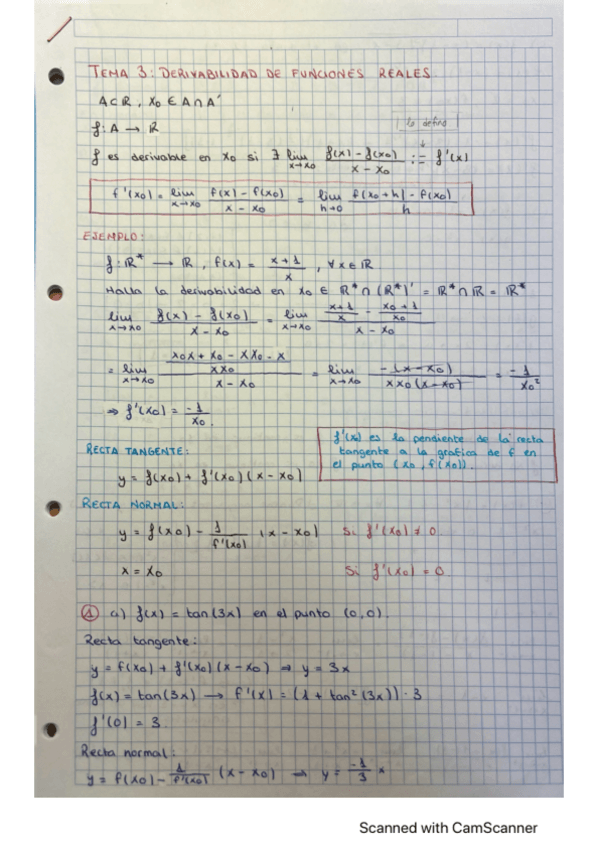 TEMA 3: DERIVABILIDAD DE FUNCIONES REALES.
A⊂ℝ, x₀ ∈ A∩A'
f: A → ℝ
lo defino
f es derivable en x₀ si ∃ lim_{x→x₀} (f(x) - f(x₀))/(x - x₀) := f'(x)
f'(x₀) = lim_{x→x₀} (f(x) - f(x₀))/(x - x₀) = lim_{h→0} (f(x₀+h) - f(x₀))/h
EJEMPLO:
f: ℝ* → ℝ, f(x) = (x+1)/x, ∀x∈ℝ
Halla la derivabilidad en x₀ ∈ ℝ*∩(ℝ*)' = ℝ*∩ℝ = ℝ*
lim_{x→x₀} (f(x) - f(x₀))/(x - x₀) = lim_{x→x₀} ((x+1)/x - (x₀+1)/x₀)/(x - x₀)
= lim_{x→x₀} ((x₀x + x₀ - xx₀ - x)/(xx₀))/(x - x₀) = lim_{x→x₀} (-(x-x₀))/(xx₀(x-x₀)) = -1/x₀²
⇒ f'(x₀) = -1/x₀.
f'(x₀) es la pendiente de la recta
tangente a la gráfica de f en
el punto (x₀, f(x₀)).
RECTA TANGENTE:
y = f(x₀) + f'(x₀)(x - x₀)
RECTA NORMAL:
y = f(x₀) - 1/f'(x₀) (x - x₀) Si f'(x₀) ≠ 0
x = x₀ Si f'(x₀) = 0.
① a) f(x) = tan(3x) en el punto (0,0).
Recta tangente:
y = f(x₀) + f'(x₀)(x - x₀) ⇒ y = 3x
f(x) = tan(3x) → f'(x) = (1 + tan²(3x)) · 3
f'(0) = 3.
Recta normal:
y = f(x₀) - 1/f'(x₀) (x - x₀) ⇒ y = -1/3 x
Scanned with CamScanner